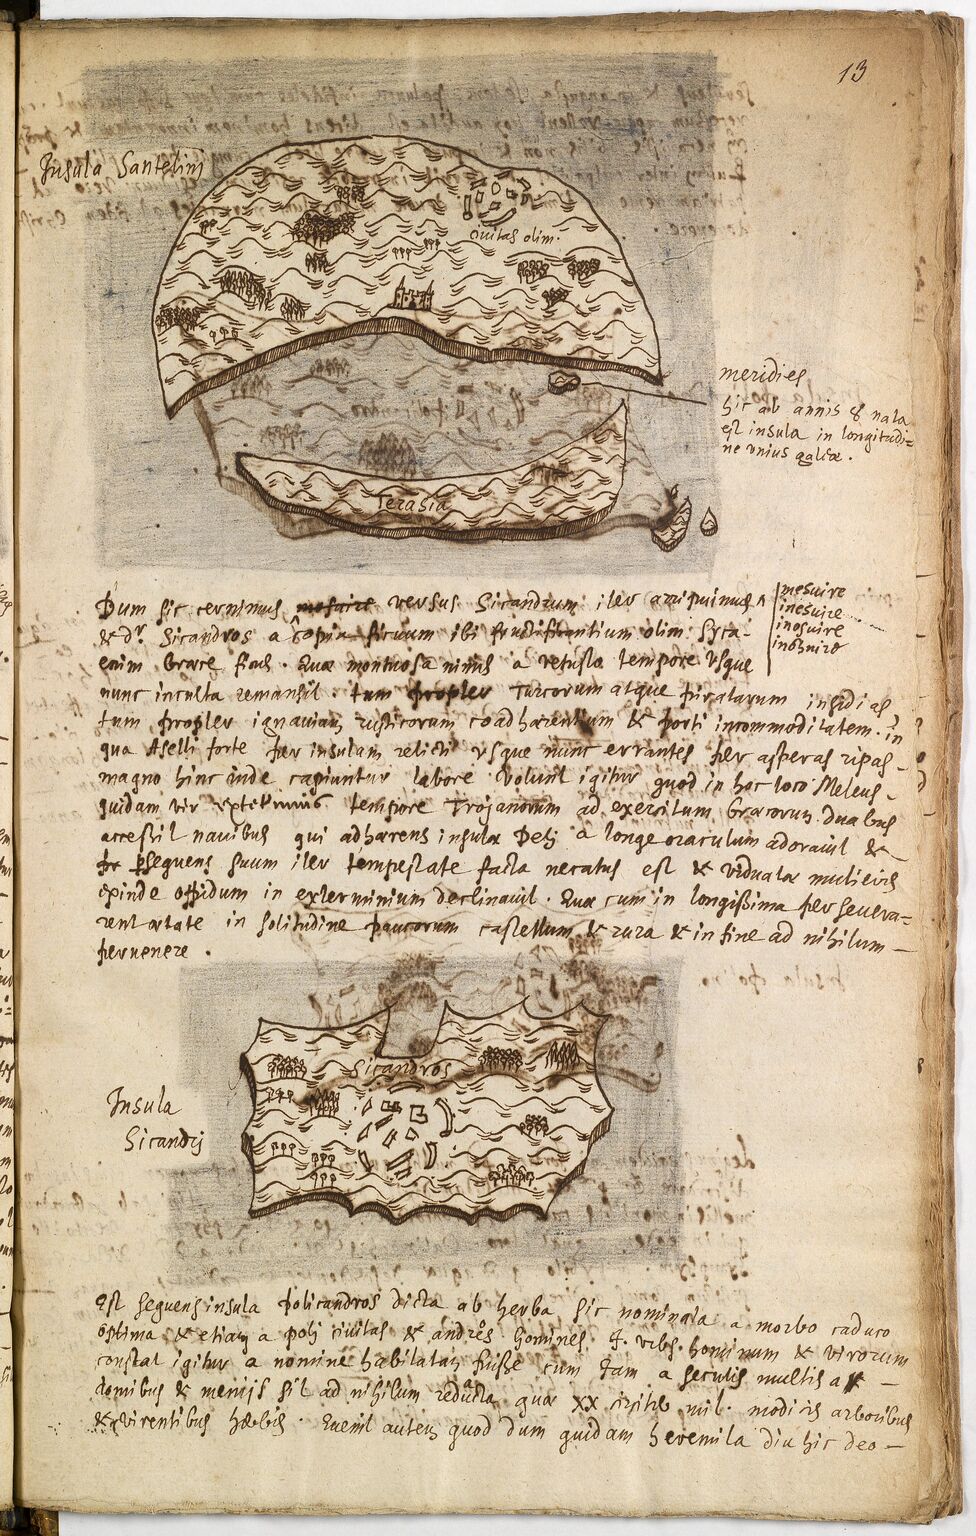 13
Insula Santelinj
Ciuitas olim.
meridies
hic ab annis 8 nata
est insula in longitudi=
ne vnius galeæ.
Terasia
Dum sic cernimus mesuire versus Sicandrum iter arripuimus
mesuire
inesuire
inosuire
& dr Sicandros a copia ficuum ibi fructificantium olim. Syca-
enim Grace ficus. Quæ montuosa nimis a vetusto tempore vsque
nunc inculta remansit. tum propter Turcorum atque piratarum insidias
tum propter ignauiam rusticorum coadharentium & porti incommoditatem. in
qua Aselli forte per insulam relicti vsque nunc errantes per asperas ripas-
magno hinc inde capiuntur labore. Volunt igitur quod in hoc loco Meleus-
quidam vir tempore Trojanorum ad exercitum Græcorum duabus
accessit nauibus qui adhærens insulæ Delj a longe oraculum adorauit &-
psequens suum iter tempestate facta necatus est & viduatæ mulieres
exinde oppidum in exterminium declinauit. Quæ cum in longissima perseuera=
rent ætate in solitudine paucorum castellum & rura & in fine ad nihilum-
peruenere.
Insula
Sicandrj
Sicandros
Est sequens insula policandros dicta ab herba sic nominata a morbo caduco
optima & etiam a polj ciuitas & andros homines q. vrbs hominum & virorum
constat igitur a nomine habitatam fuisse cum iam a seculis multis a-
domibus & menijs sit ad nihilum reducta quæ XX mil. modicis arboribus
& virentibus hærbis. quod dum quidam heremita diu hic deo-